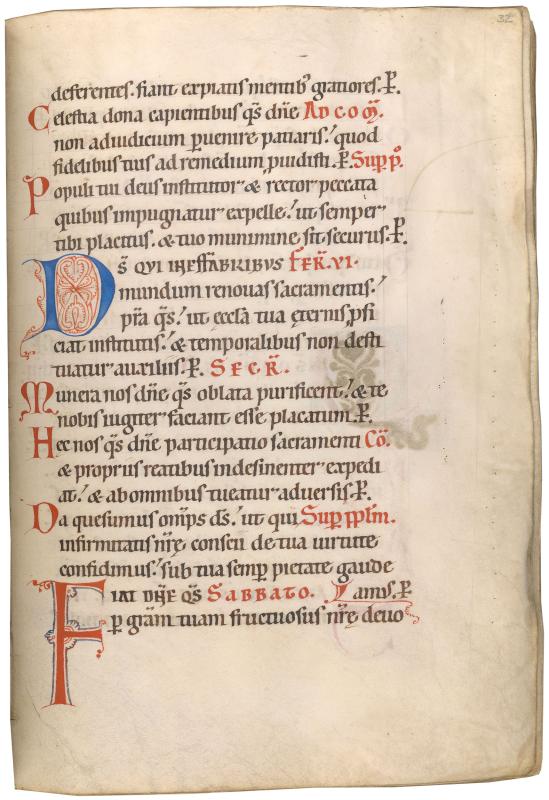 32
deferentes. fiant expiatis mentib; gratiores. P̲.
Celestia dona capientibus q̄s dn̄e Ad com̄.
non adiudicium ꝑuenire patiaris: quod
fidelibus tuis ad remedium ꝓuidisti. P̲. Suꝑ pᵒ.
Populi tui deus institutor & rector peccata
quibus impugnatur expelle: ut semper
tibi placitus. & tuo munimine sit securus. P̲.
Ds̄ qui ineffabribus fer̄. vi.
mundum renouas sacramentis:
p̄ra q̄s: ut eccla̅ tua ęternis ꝓfi
ciat institutis: & temporalibus non desti
tuatur auxiliis. P̲. Secr̄.
Munera nos dn̄e q̄s oblata purificent: & te
nobis iugiter faciant esse placatum. P̲.
Hec nos q̄s dn̄e participatio sacramenti Cō.
& propriis reatibus indesinenter expedi
at: & ab omnibus tueatur aduersis. P̲.
Da quesumus omp̄s ds̄. ut qui Suꝑ ppl̄m.
infirmitatis nr̄ę conscii de tua uirtute
confidimus: sub tua semꝑ pietate gaude
Fiat dn̄e q̄s Sabbato. Lamus. P̲.
ꝑ gr̄am tuam fructuosus nr̄ę deuo